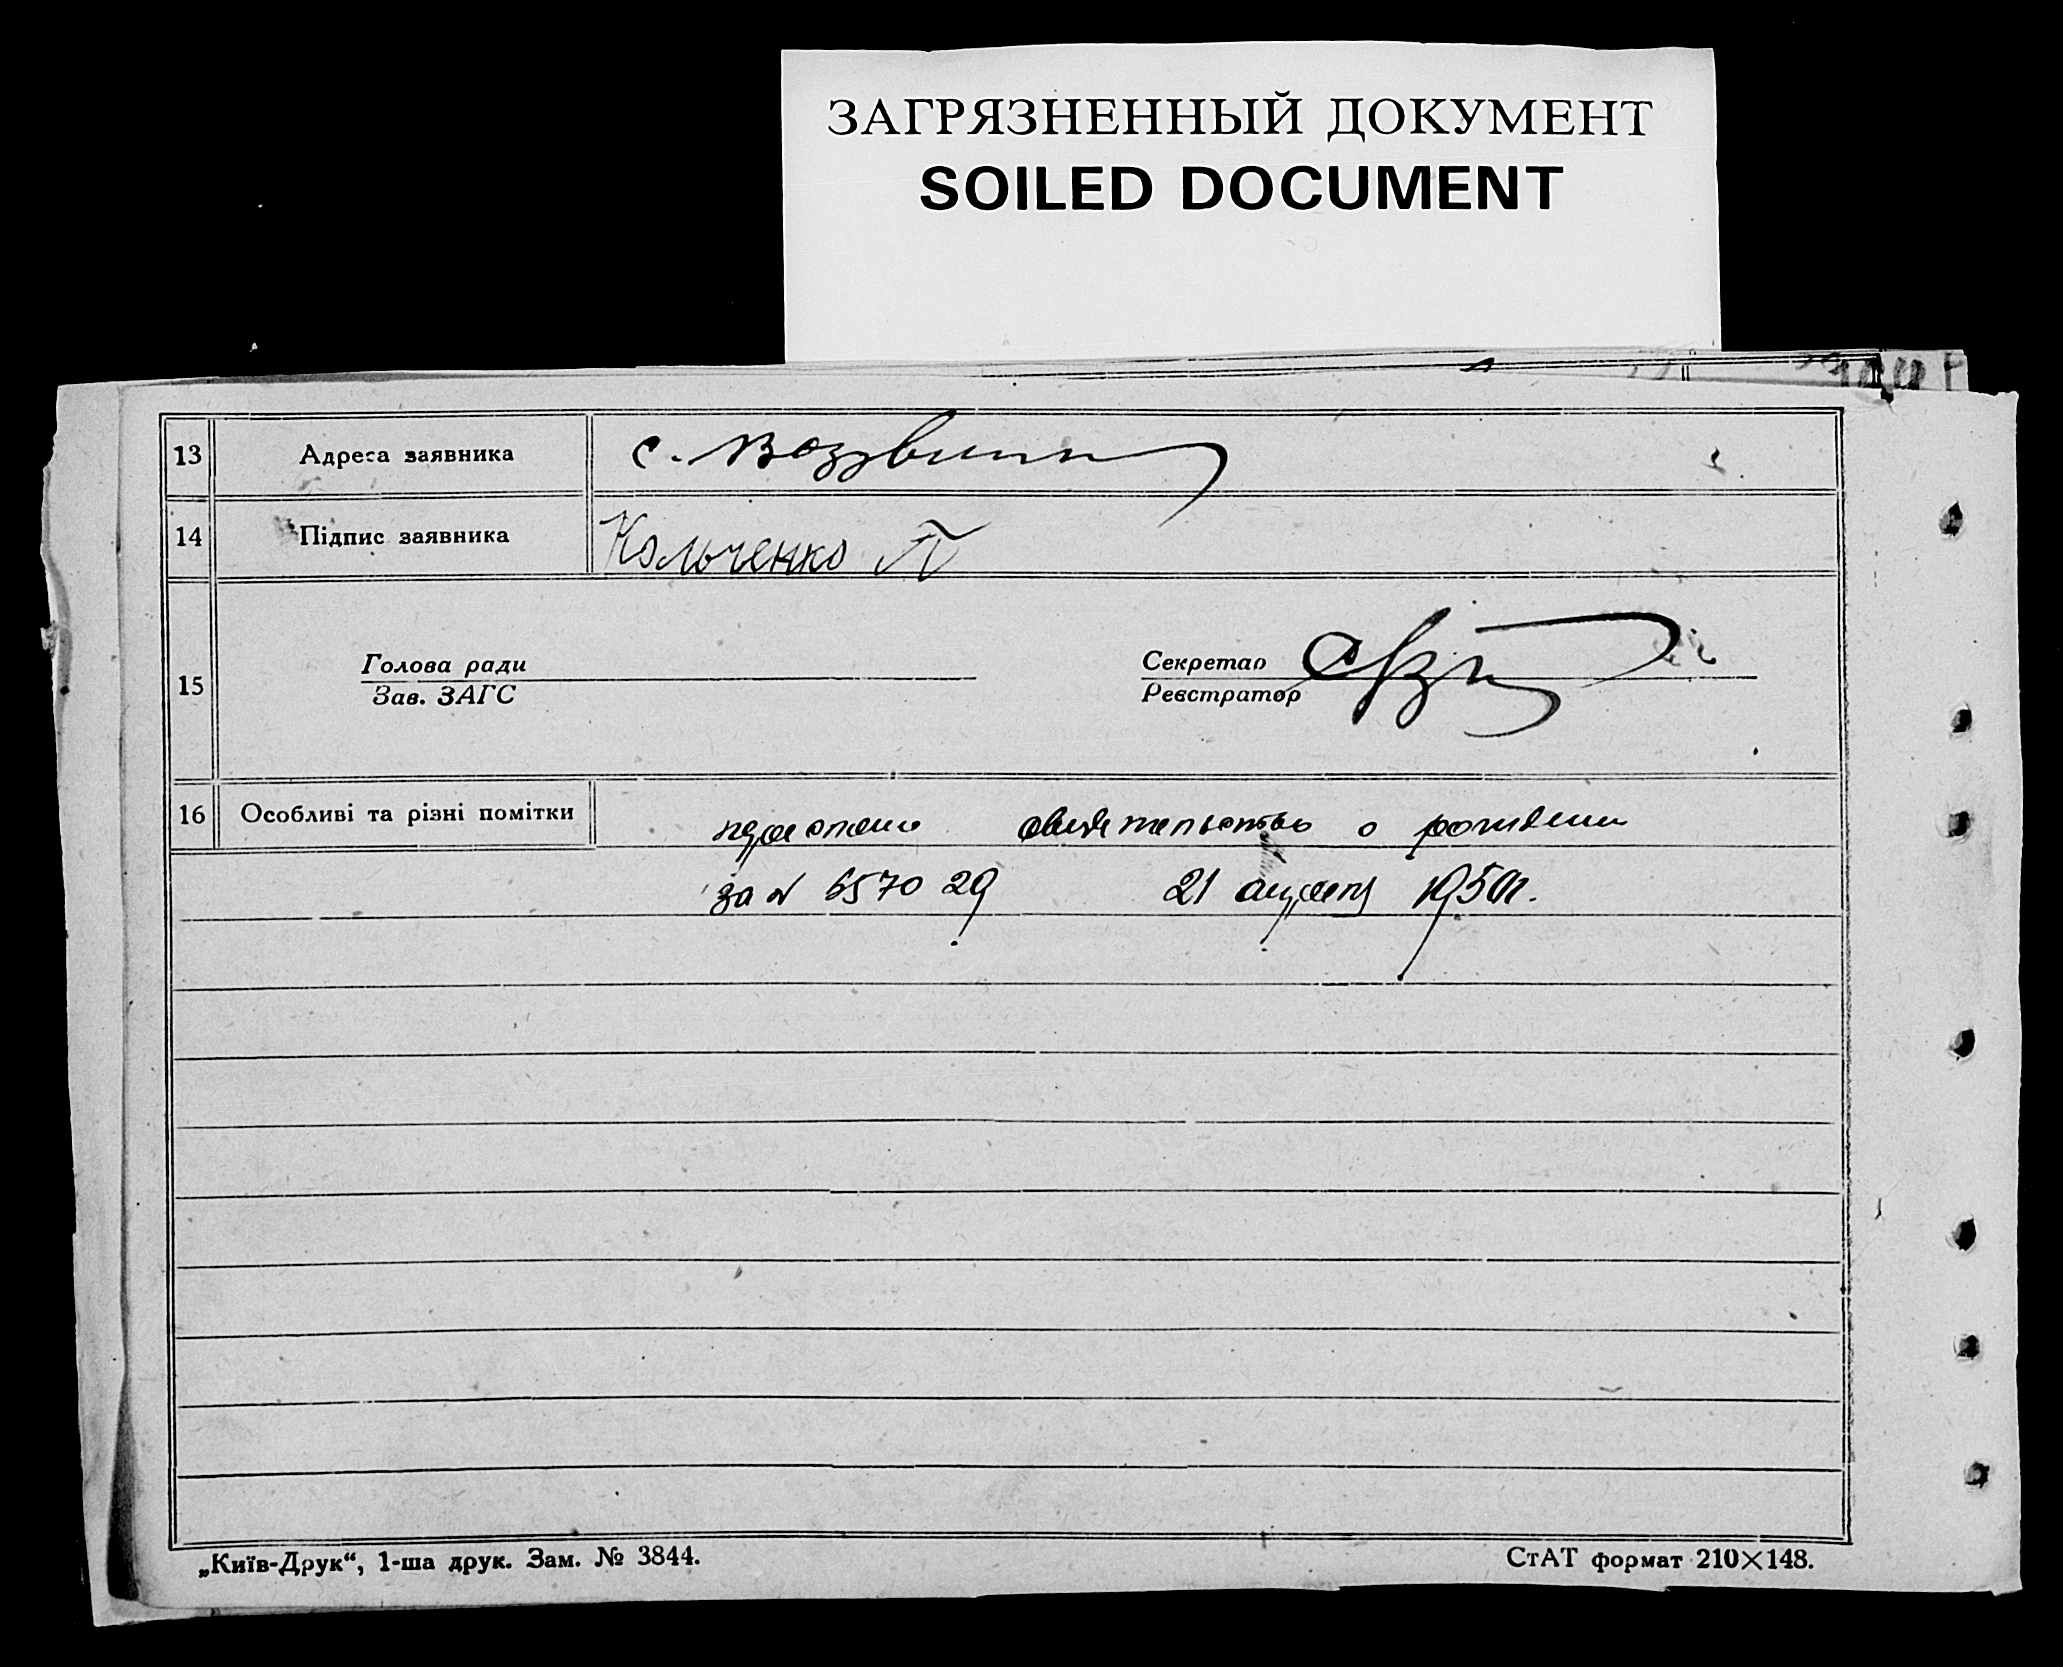 ЗАГРЯЗНЕННЫЙ ДОКУМЕНТ
SOILED DOCUMENT
13 Адреса заявника с.
14 Підпис заявника Кольченко П
Голова ради Секретар
15
Зав. ЗАГС Реєстратор
16 Особливі та різні помітки свидетельство о рождении
за № 657029 21 апреля 1950г.
„Київ-Друк“, 1-ша друк. Зам. № 3844. СтАТ формат 210×148.